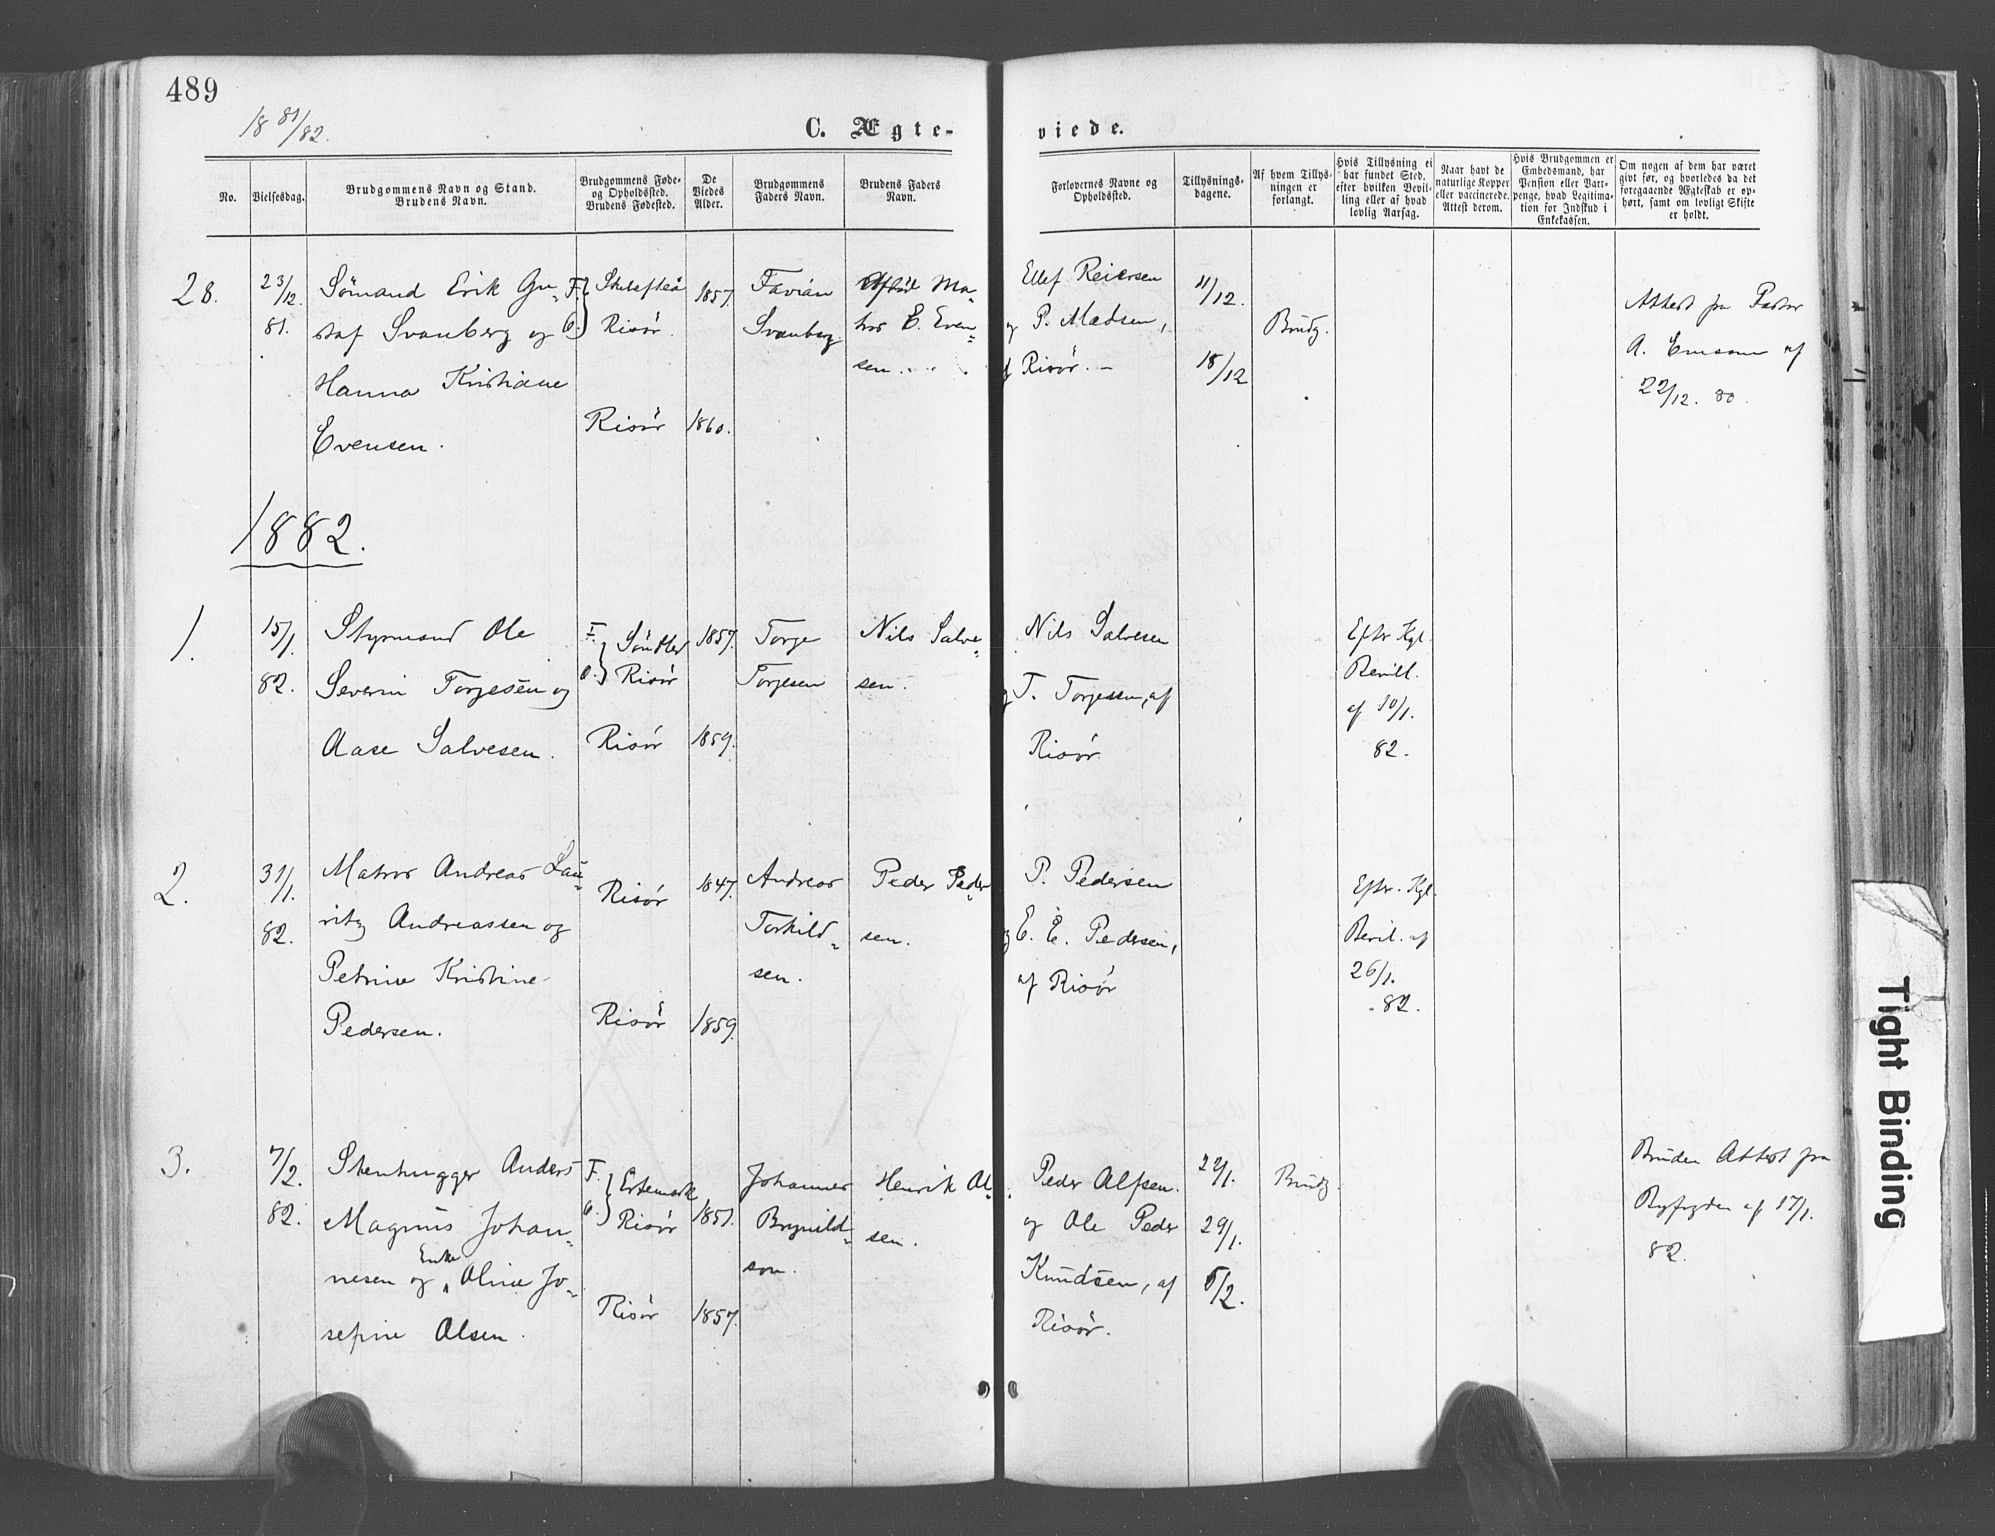 489
18 81/82.
C. Ægte-
viede.
No.
Vielsesdag.
Brudgommens Navn og Stand.
Brudens Navn.
Brudgommens Føde-
og Opholdssted.
Brudens Fødested.
De
Viedes
Alder.
Brudgommens
Faders Navn.
Brudens Faders
Navn.
Forlovernes Navne og
Opholdssted.
Tillysnings-
dagene.
Af hvem Tillys-
ningen er
forlangt.
Hvis Tillysning ei
har fundet Sted,
efter hvilken Bevil-
ling eller af hvad
lovlig Aarsag.
Naar havt de
naturlige Kopper
eller vaccinerede.
Attest derom.
Hvis Brudgommen er
Embedsmand, har
Pension eller Vart-
penge, hvad Legitima-
tion for Indskud i
Enkekassen.
Om nogen af dem har været
givt før, og hvorledes da det
foregaaende Ægteskab er op-
hørt, samt om lovligt Skifte
er holdt.
28.
23/12.
81.
Sömand Erik Gu-
staf Svanberg og
Hanna Kristiane
Evensen.
F.
O.
Skelefteå
Risör.
Risör
1857.
1860.
Favian
Svanberg
Ma-
hros E. Even-
sen.
Ellef Reiersen
og P. Madsen,
af Risör. -
11/12.
18/12
Brudg.
Attest fra Pastor
A. af
22/12. 80.
1882.
1.
15/1.
82.
Styrmand Ole
Severin Torjesen og
Aase Salvesen.
F.
O.
Söndled
Risör
Risör
1857.
1859.
Torje
Torjesen
Nils Salve-
sen.
Nils Salvesen
og T. Torjesen, af
Risör
Eftr Kgl.
Bevill.
af 10/1.
82.
2.
31/1.
82.
Matros Andreas Lau-
ritz Andreassen og
Petrine Kristine
Pedersen.
Risör
Risör
1847.
1859.
Andreas
Torkild-
sen.
Peder Peder-
sen.
P. Pedersen
og E. E. Pedersen,
af Risör
Eftr. Kgl.
Bevil. af
26/1.
82.
3.
7/2.
82.
Stenhugger Anders
Magnus Johan-
nesen og Enke Oline Jo-
sefine Olsen.
F.
O.
Estemark
Risör
Risör
1851.
1857.
Johannes
Brynild-
son.
Henrik Al-
sen.
Peder Alfsen.
og Ole Peder
Knudsen, af
Risör.
22/1.
29/1.
5/2.
Brudg.
Bruden Attest fra
Byfogden af 17/1.
82.
Tight Binding